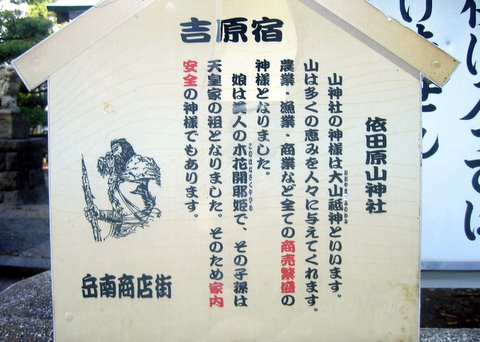 吉原宿
依田原山神社
山神社の神様は大山祗神といいます。
山は多くの恵みを人々に与えてくれます。
農業・漁業・商業など全ての商売繁盛の
神様となりました。
娘は美人の木花開耶姫で、その子孫は
天皇家の祖となりました。そのため家内
安全の神様でもあります。
岳南商店街